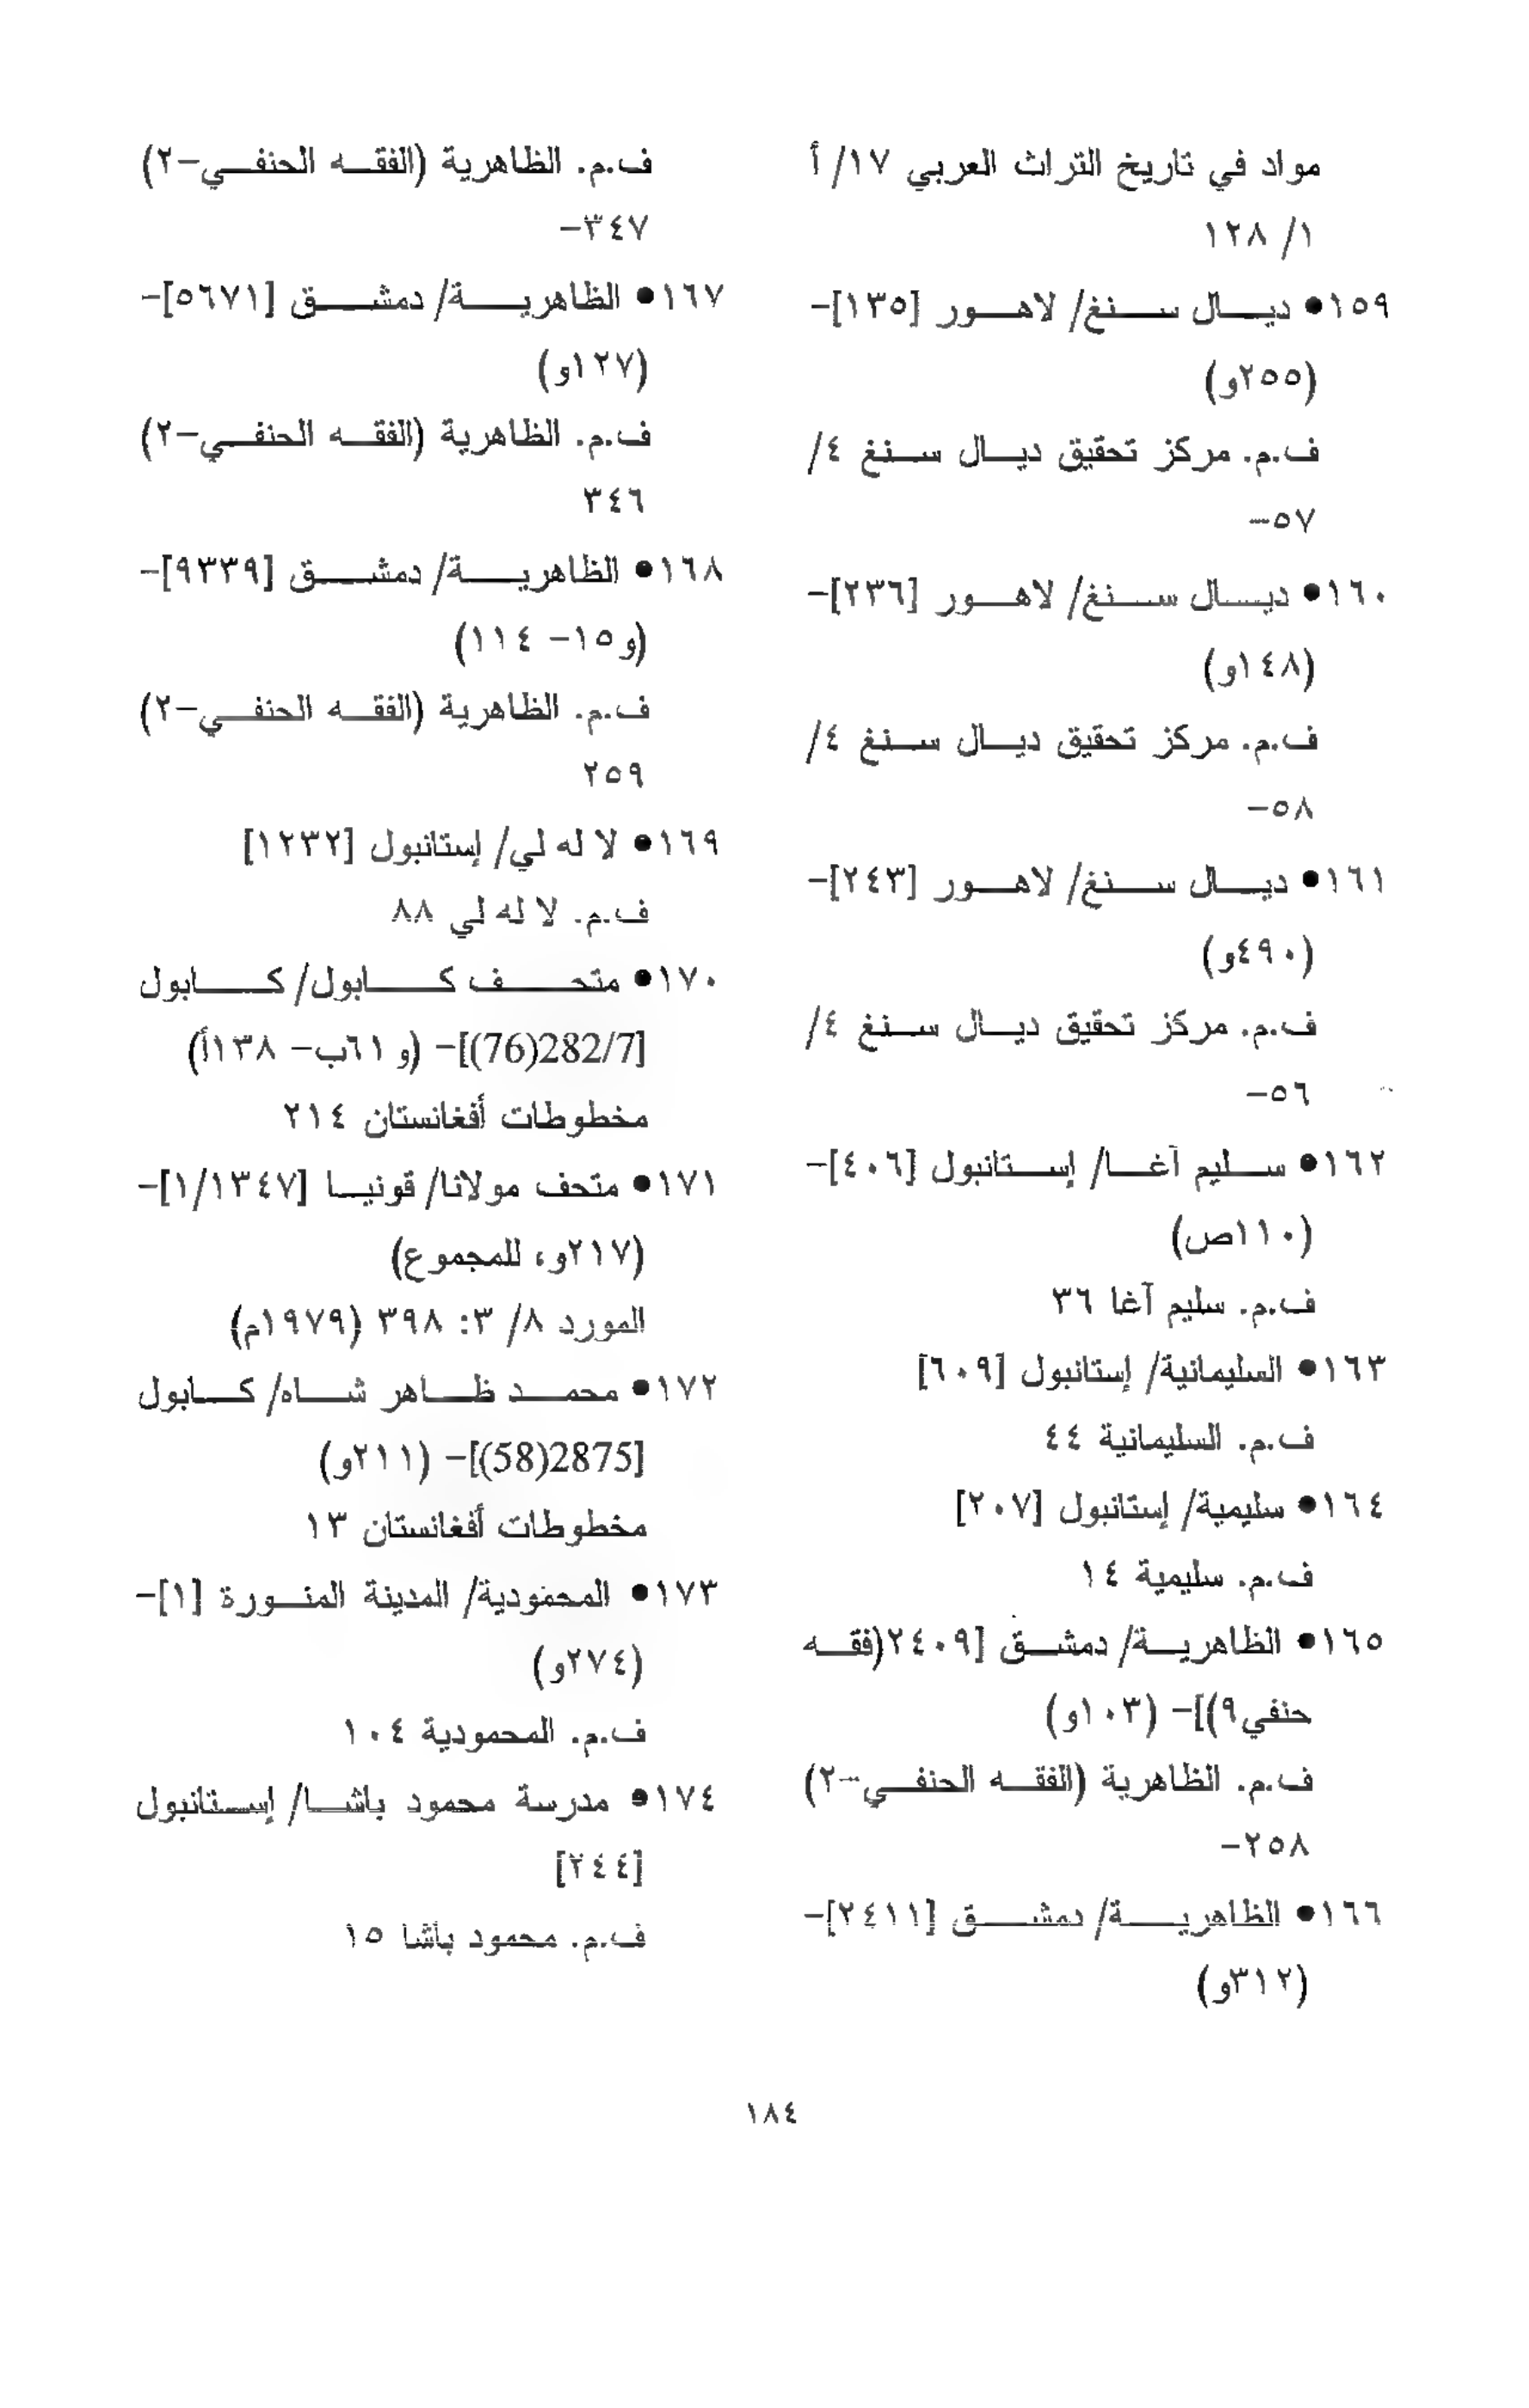 مواد في تاريخ التراث العربي ١٧/ أ
١/ ١٢٨
١٥٩● ديال سنغ/ لاهور [١٣٥]-
(٢٥٥و)
ف.م. مركز تحقيق ديال سنغ ٤/
٥٧-
١٦٠● ديال سنغ/ لاهور [٢٣٦]-
(١٤٨و)
ف.م. مركز تحقيق ديال سنغ ٤/
٥٨-
١٦١● ديال سنغ/ لاهور [٢٤٣]-
(٤٩٠و)
ف.م. مركز تحقيق ديال سنغ ٤/
٥٦-
١٦٢● سليم آغا/ إستانبول [٤٠٦]-
(١١٠ص)
ف.م. سليم آغا ٣٦
١٦٣● السليمانية/ إستانبول [٦٠٩]
ف.م. السليمانية ٤٤
١٦٤● سليمية/ إستانبول [٢٠٧]
ف.م. سليمية ١٤
١٦٥● الظاهرية/ دمشق [٢٤٠٩(فقه
حنفي٩)]- (١٠٣و)
ف.م. الظاهرية (الفقه الحنفي-٢)
٢٥٨-
١٦٦● الظاهرية/ دمشق [٢٤١١]-
(٣١٢و)
ف.م. الظاهرية (الفقه الحنفي-٢)
٣٤٧-
١٦٧● الظاهرية/ دمشق [٥٦٧١]-
(١٢٧و)
ف.م. الظاهرية (الفقه الحنفي-٢)
٣٤٦
١٦٨● الظاهرية/ دمشق [٩٣٣٩]-
(و١٥- ١١٤)
ف.م. الظاهرية (الفقه الحنفي-٢)
٢٥٩
١٦٩● لا له لي/ إستانبول [١٢٣٢]
ف.م. لا له لي ٨٨
١٧٠● متحف كابول/ كابول
[282/7(76)]- (و ٦١ب- ١٣٨أ)
مخطوطات أفغانستان ٢١٤
١٧١● متحف مولانا/ قونيا [١/١٣٤٧]-
(٢١٧و، للمجموع)
المورد ٨/ ٣: ٣٩٨ (١٩٧٩م)
١٧٢● محمد ظاهر شاه/ كابول
[2875(58)]- (٢١١و)
مخطوطات أفغانستان ١٣
١٧٣● المحمودية/ المدينة المنورة [١]-
(٢٧٤و)
ف.م. المحمودية ١٠٤
١٧٤● مدرسة محمود باشا/ إستانبول
[٢٤٤]
ف.م. محمود باشا ١٥
١٨٤